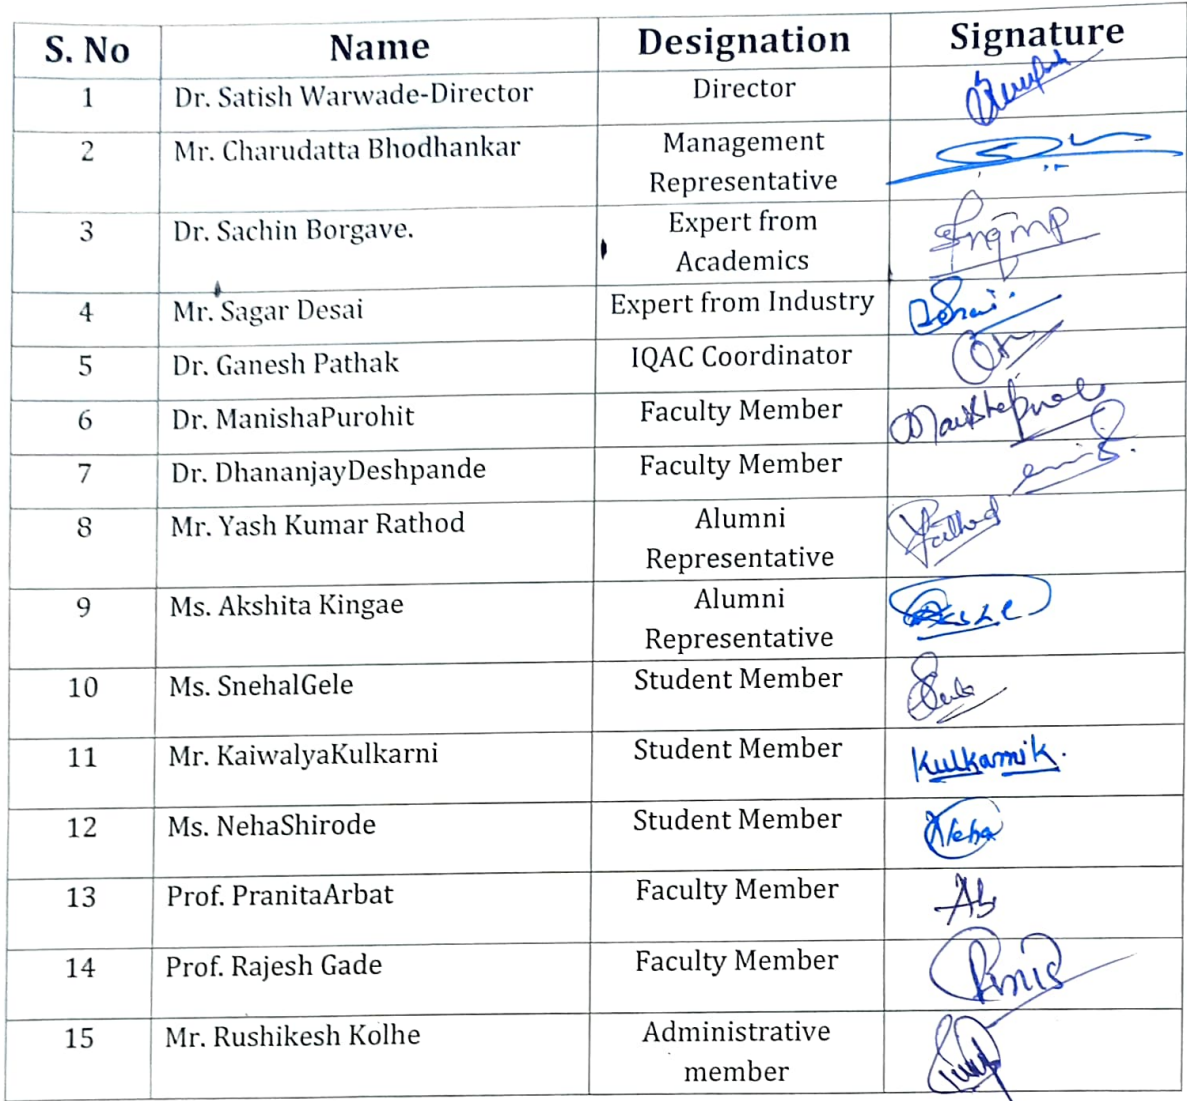 S. No Name Designation Signature
1 Dr. Satish Warwade-Director Director
2 Mr. Charudatta Bhodhankar Management
Representative
3 Dr. Sachin Borgave. Expert from
Academics
4 Mr. Sagar Desai Expert from Industry
5 Dr. Ganesh Pathak IQAC Coordinator
6 Dr. ManishaPurohit Faculty Member
7 Dr. DhananjayDeshpande Faculty Member
8 Mr. Yash Kumar Rathod Alumni
Representative
9 Ms. Akshita Kingae Alumni
Representative
10 Ms. SnehalGele Student Member
11 Mr. KaiwalyaKulkarni Student Member Kulkarnik.
12 Ms. NehaShirode Student Member Neha
13 Prof. PranitaArbat Faculty Member
14 Prof. Rajesh Gade Faculty Member
15 Mr. Rushikesh Kolhe Administrative
member